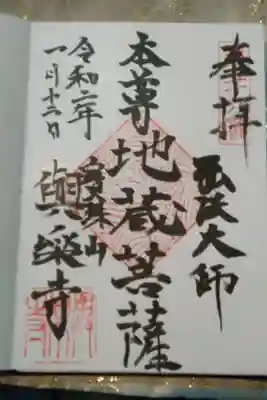 奉拝
弘法大師
本尊地蔵菩薩
宝珠山
與楽寺
令和二年
一月十二日